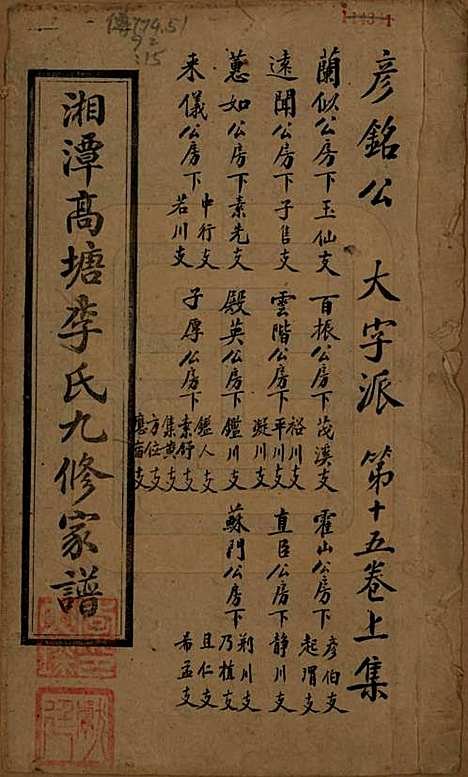 彦銘公　大字派　第十五卷上集
蘭似公房下玉仙支　百振公房下茂溪支　霍山公房下彦伯支
起渭支
遠聞公房下子隹支　雲階公房下裕川支
平川支
凝川支
直臣公房下静川支
蕙如公房下素先支　殿英公房下鑑川支　蘇門公房下荊川支
乃植支
且仁支
希孟支
来儀公房下中行支
若川支
子厚公房下鑑人支
素行支
集黄支
方位支
湘潭高塘李氏九修家譜